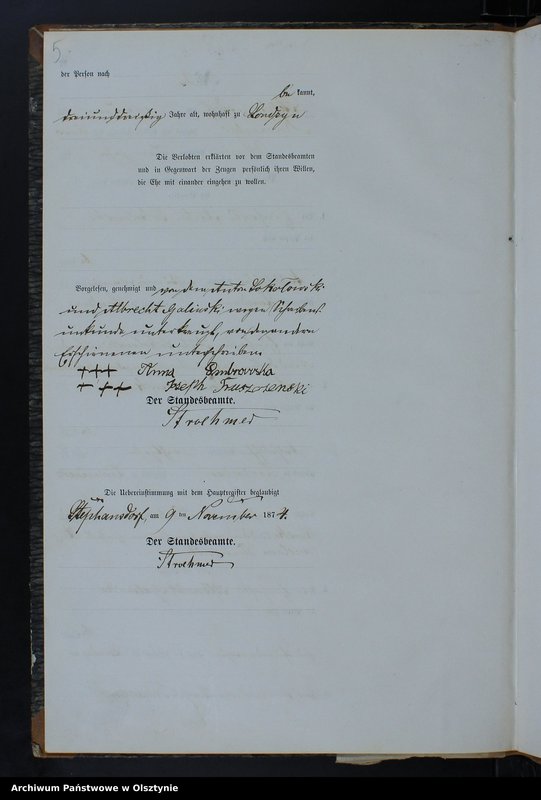 5
der Person nach
be kannt,
dreiunddreißig Jahre alt, wohnhaft zu Londzyn
Die Verlobten erklärten vor dem Standesbeamten
und in Gegenwart der Zeugen persönlich ihren Willen,
die Ehe mit einander eingehen zu wollen.
Vorgelesen, genehmigt und von dem Anton Sokolowski
und Albrecht Galinski wegen Schreibens
unkunde unterkreuzt, von den andern
Erschienenen unterschrieben.
+++ Anna Dombrowska
+ ++ Joseph
Der Standesbeamte.
Stroehmer
Die Uebereinstimmung mit dem Hauptregister beglaubigt
Stephansdorf, am 9 ten November 1874.
Der Standesbeamte.
Stroehmer
Archiwum Państwowe w Olsztynie